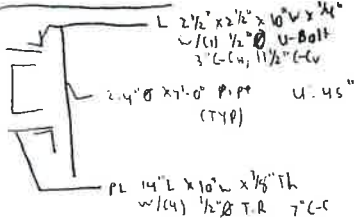 L 2 1/2" x 2 1/2" x 10" W x 1/4"
W/(1) 1/2" Ø U-Bolt
3" C-CH, 11 1/2" C-CV
2.4" Ø x 7'-0" PIPE U. 45"
(TYP)
PL 14" L x 10" W x 3/8" Th
W/(4) 1/2" Ø T.R 7" C-C